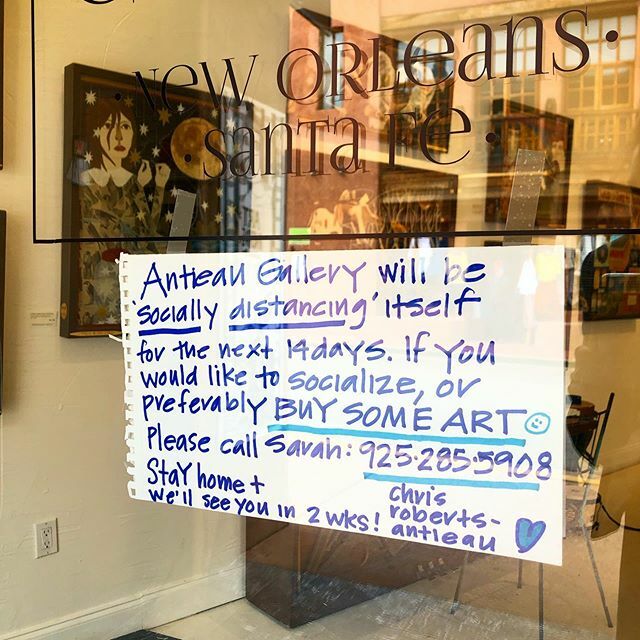 • New Orleans •
• Santa Fe •
Antieau Gallery will be
'socially distancing' itself
for the next 14 days. If you
would like to socialize, or
preferably BUY SOME ART
Please call Sarah: 925·285·5908
Stay home +
we'll see you in 2 wks!
chris
roberts-
antieau